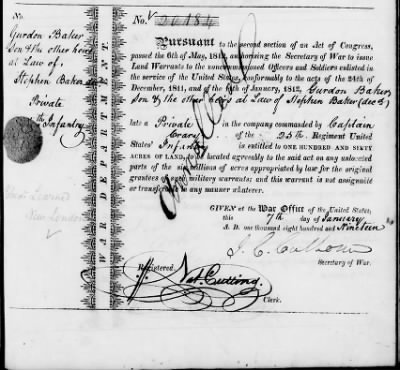 No.
Gurdon Baker
Son & the other heirs
at Law of
Stephen Baker decd
Private
th Infantry
New London
WAR DEPARTMENT.
No. 20184
PURSUANT to the second section of an Act of Congress,
passed the 6th of May, 1812, authorising the Secretary of War to issue
Land Warrants to the noncommissioned Officers and Soldiers enlisted in
the service of the United States, conformably to the acts of the 24th of
December, 1811, and of the 11th of January, 1812, Gurdon Baker,
Son & the other heirs at Law of Stephen Baker (decd)
late a Private in the company commanded by Captain
Crary of the 25th Regiment United
States' Infantry is entitled to ONE HUNDRED AND SIXTY
ACRES OF LAND, to be located agreeably to the said act on any unlocated
parts of the six millions of acres appropriated by law for the original
grantees of such military warrants; and this warrant is not assignable
or transferable in any manner whatever.
GIVEN at the War Office of the United States,
this 7th day of January
A. D. one thousand eight hundred and Nineteen
J. C. Calhoun
Secretary of War.
Registered
Nat. Cutting.
Clerk.